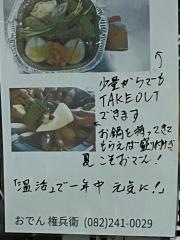 少量からでも
TAKEOUT
できます
お鍋を持ってきて
もらえば
夏こそおでん！
「温活」で一年中 元気に！
おでん 権兵衛 (082)241-0029